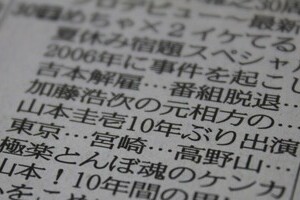 プロデビュー〜最新
めちゃ×2イケてる
夏休み宿題スペシャル
2006年に事件を起こし
吉本解雇…番組脱退…
加藤浩次の元相方の…
山本圭壱10年ぶり出演
東京…宮崎…高野山…
極楽とんぼ魂のケンカ
山本!10年間の思い